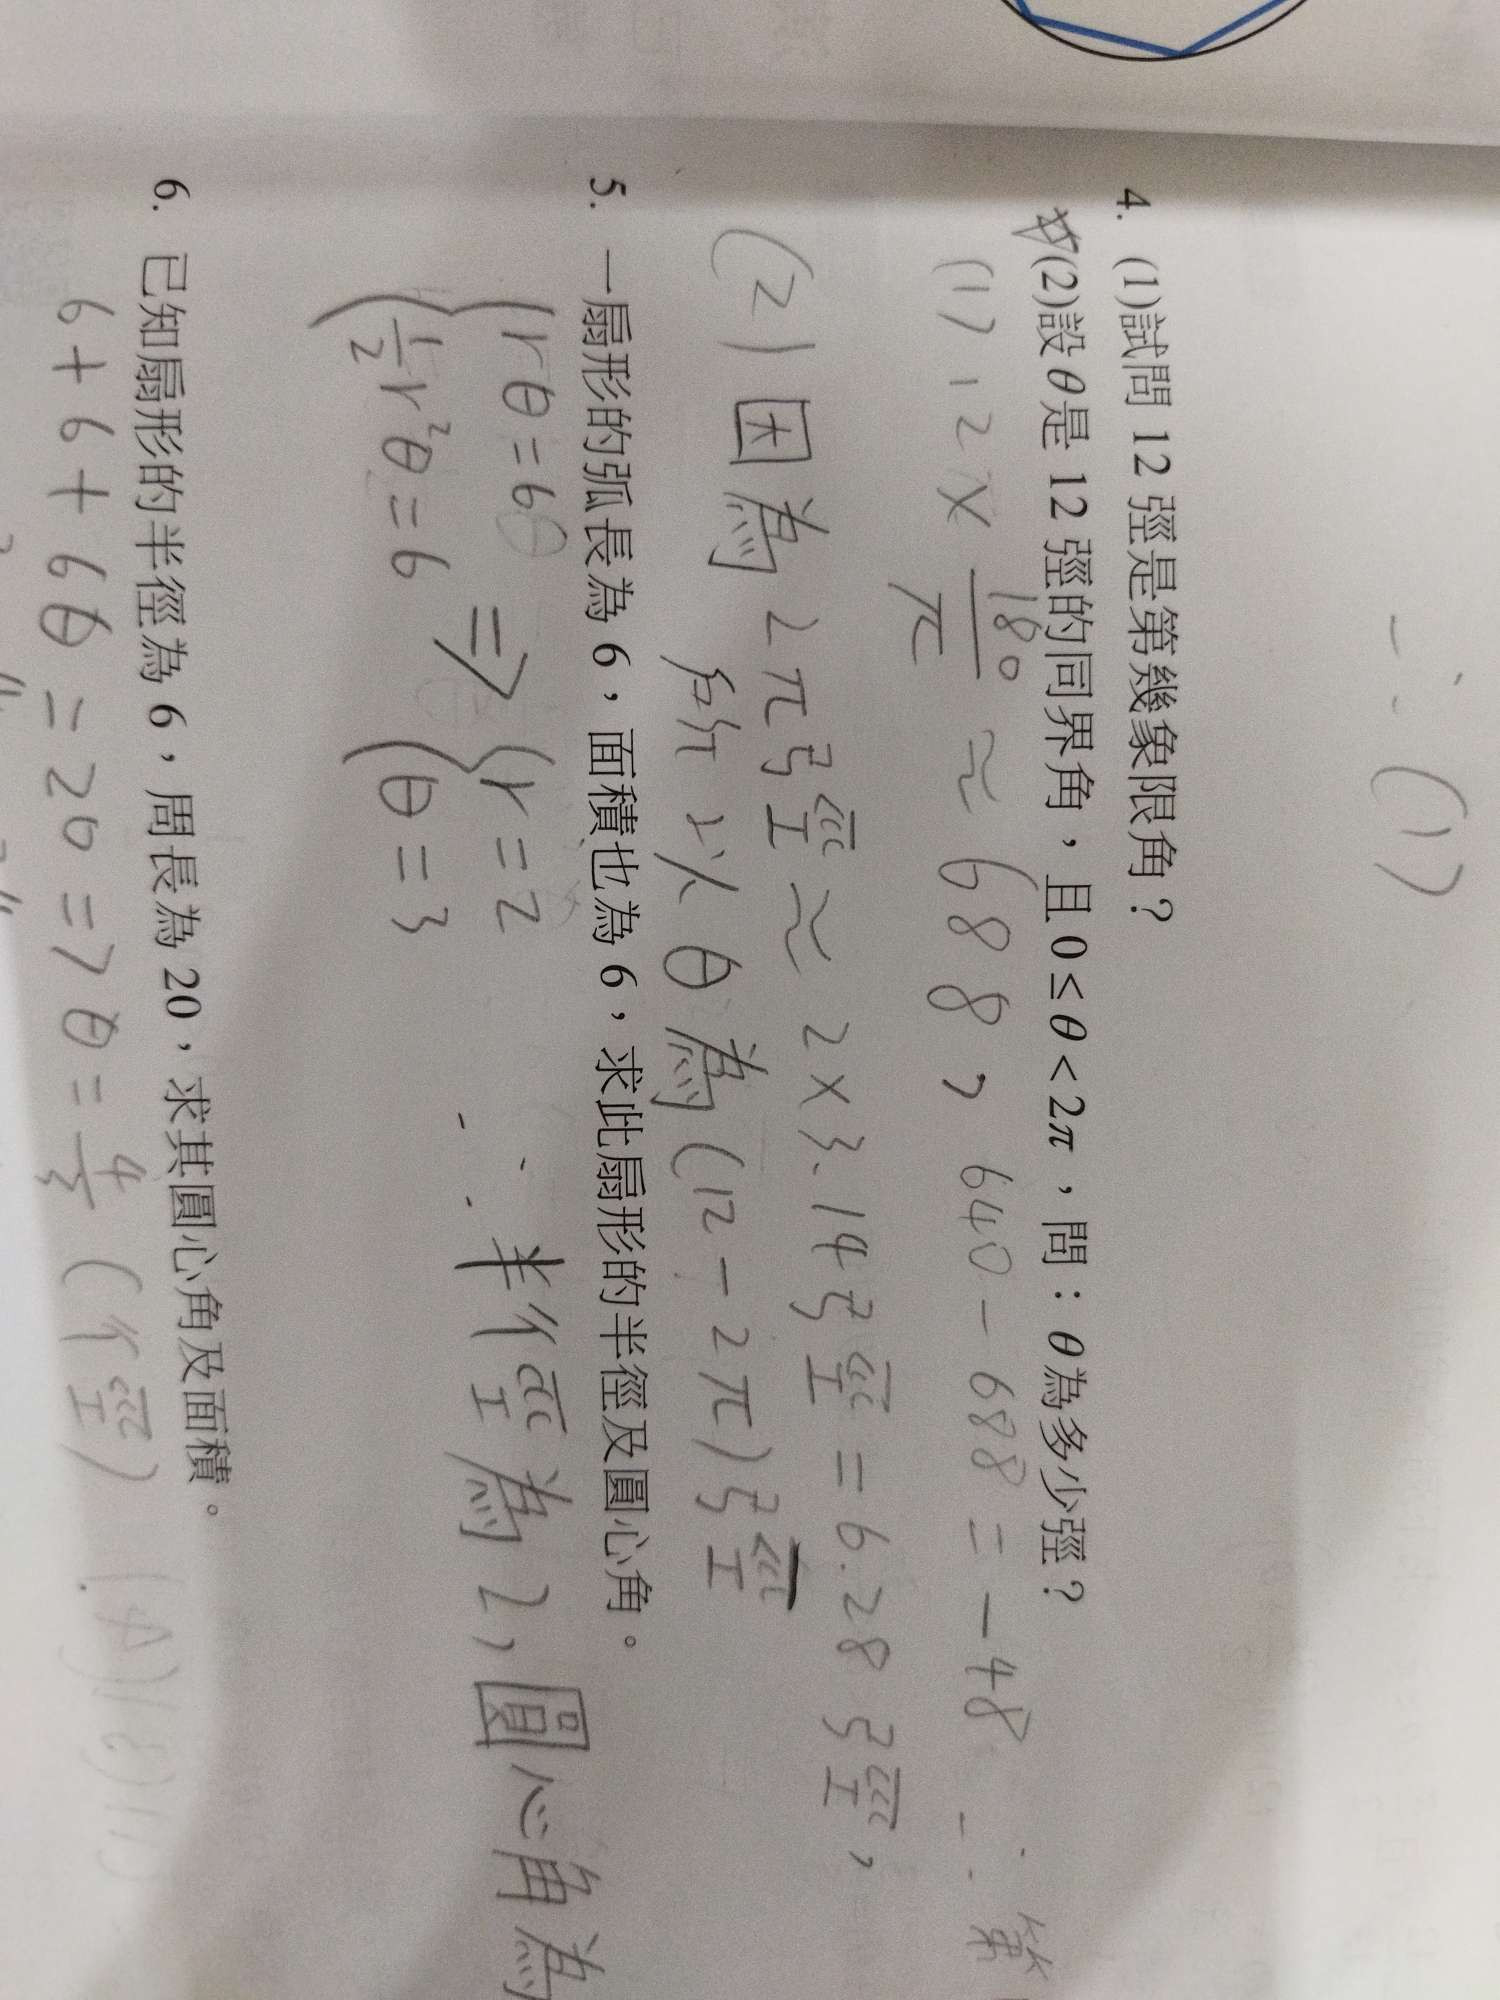 ∴(1)
4. (1)試問 12 弳是第幾象限角？
(2)設 θ 是 12 弳的同界角，且 0 ≤ θ < 2π，問：θ 為多少弳？
(1) 12 × 180/π ≈ 688, 640-688=-48 ∴第
(2) 因為 2π弳 ≈ 2×3.14弳 = 6.28弳,
所以 θ 為 (12-2π)弳
5. 一扇形的弧長為 6，面積也為 6，求此扇形的半徑及圓心角。
{rθ=6 ⇒ {r=2
{1/2 r²θ=6 {θ=3
∴半徑為2, 圓心角為
6. 已知扇形的半徑為 6，周長為 20，求其圓心角及面積。
6+6+6θ=20 ⇒ θ=4/3 (徑)